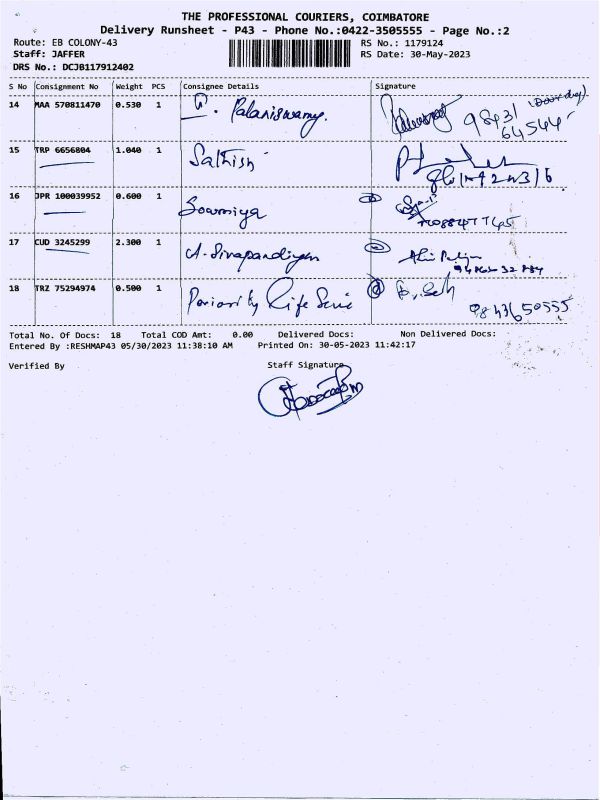 THE PROFESSIONAL COURIERS, COIMBATORE
Delivery Runsheet - P43 - Phone No.:0422-3505555 - Page No.:2
Route: EB COLONY-43 RS No.: 1179124
Staff: JAFFER RS Date: 30-May-2023
DRS No.: DCJ0117912402
S No Consignment No Weight PCS Consignee Details Signature
14 MAA 570811470 0.530 1 Palaniswamy. 98431
64544
15 TRP 6656804 1.040 1 Sathish
16 JPR 100039952 0.600 1 Sowmiya
17 CUD 3245299 2.300 1 A. Sivapandiyan
18 TRZ 75294974 0.500 1 Life 9843650555
Total No. Of Docs: 18 Total COD Amt: 0.00 Delivered Docs: Non Delivered Docs:
Entered By :RESHMAP43 05/30/2023 11:38:10 AM Printed On: 30-05-2023 11:42:17
Verified By Staff Signature